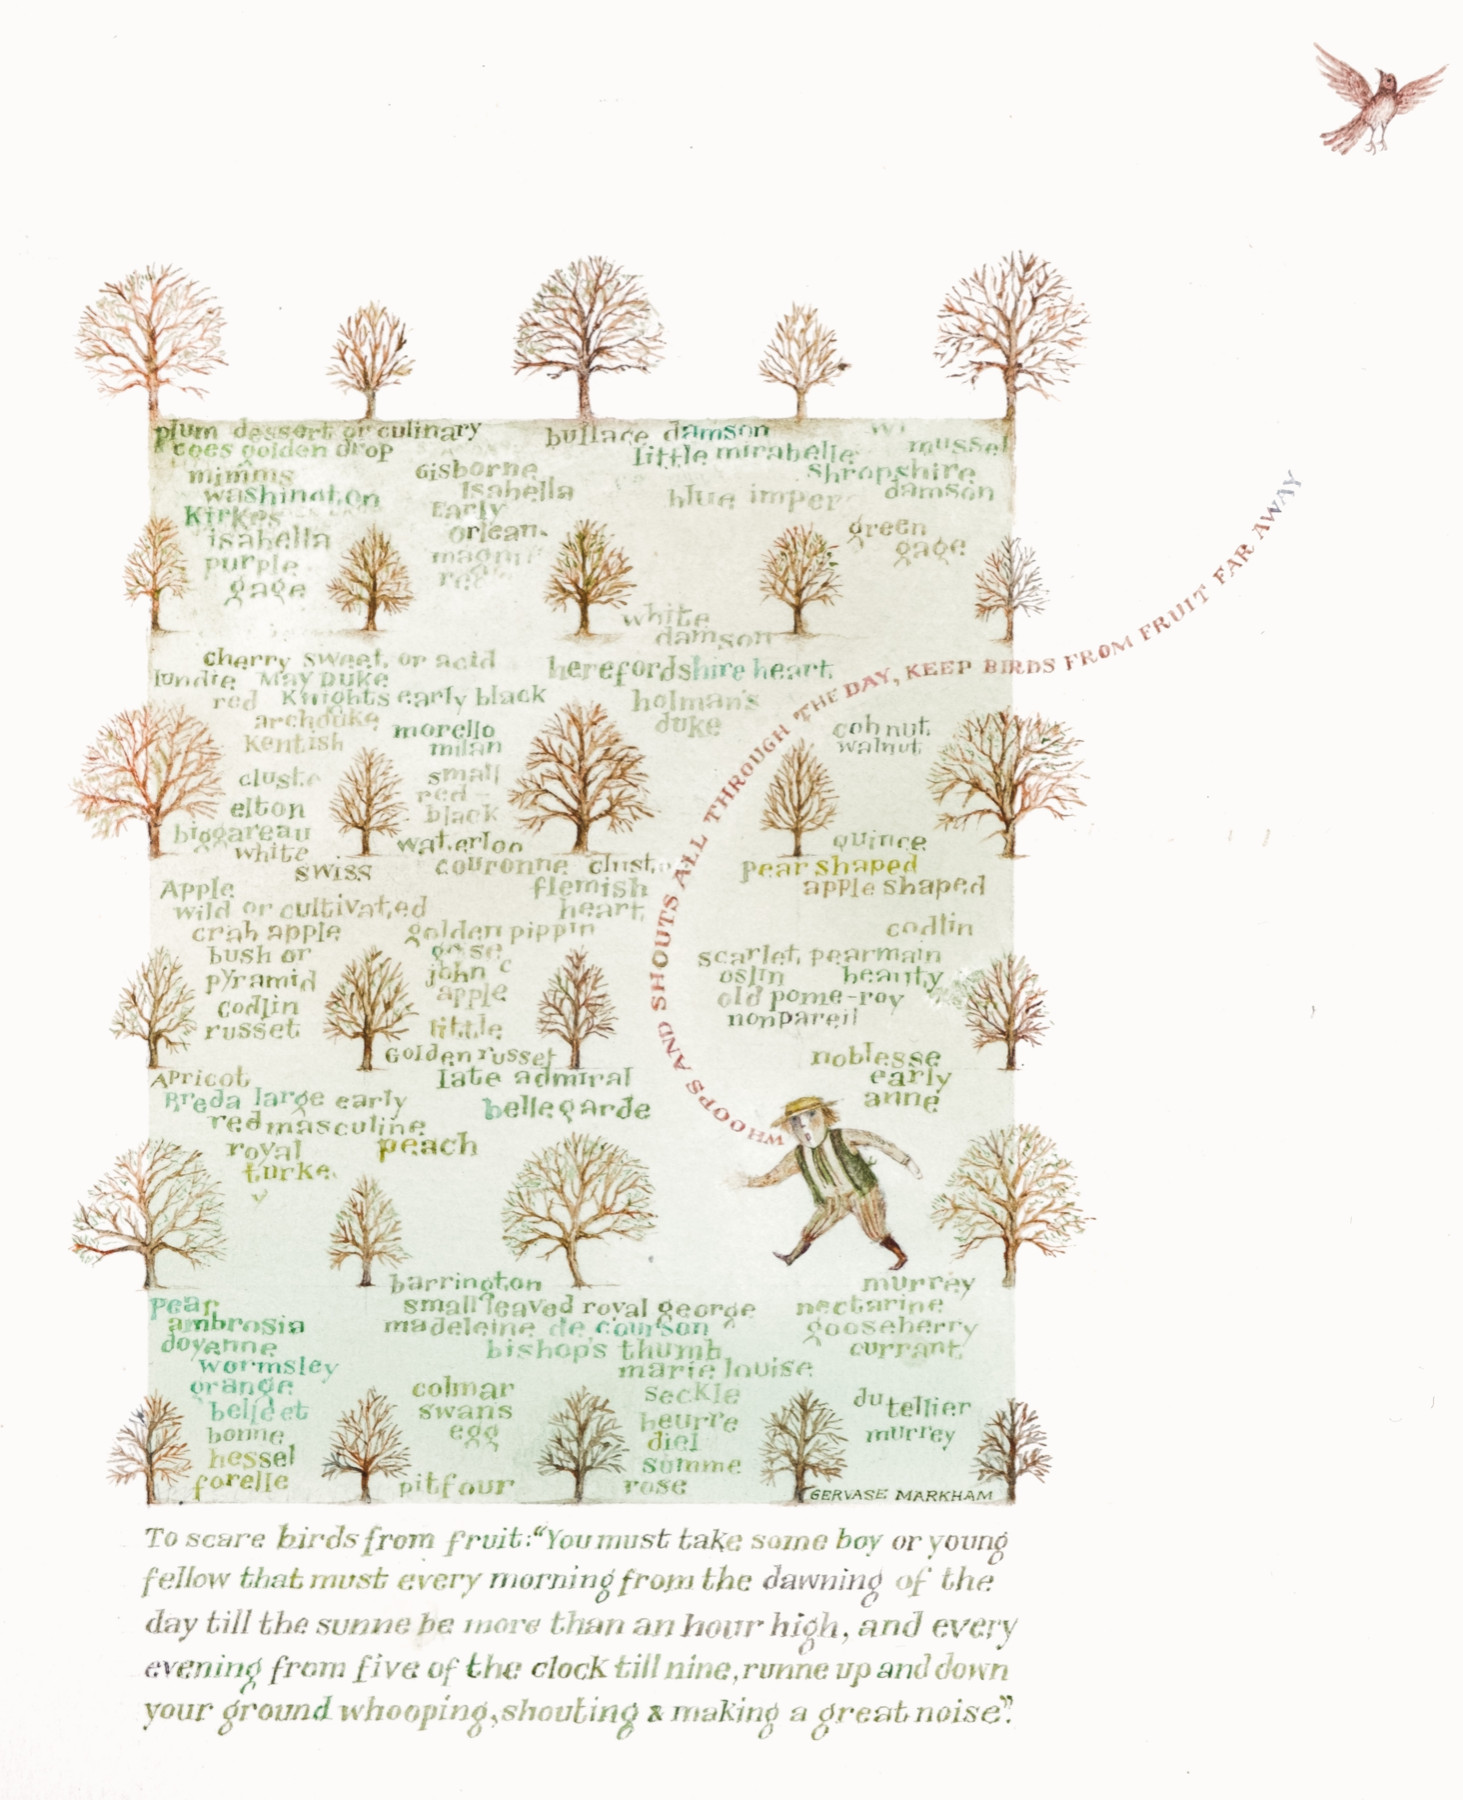 plum dessert or culinary
coes golden drop
mimms
washington
Kirkes
isabella
purple
gage
Gisborne
Isabella
Early
orlean
bullace damson
little mirabelle
mussel
shropshire
damson
blue imper
green
gage
white
damson
cherry sweet or acid
lundie May Duke
red Knights early black
archduke
Kentish
morello
milan
cluste
elton
biggareau
white
swiss
small
red
black
waterloo
couronne clust
flemish
heart
herefordshire heart
holman's
duke
cob nut
walnut
quince
pear shaped
apple shaped
Apple
wild or cultivated
crab apple
bush or
pyramid
codlin
russet
golden pippin
john
apple
little
Golden russet
codlin
scarlet pearmain
oslin beauty
old pome-roy
nonpareil
Apricot
Breda large early
red masculine
royal
turke
y
peach
late admiral
bellegarde
noblesse
early
anne
barrington
small leaved royal george
madeleine de courson
bishop's thumb
marie louise
murrey
nectarine
gooseberry
currant
pear
ambrosia
doyenne
wormsley
orange
bonne
hessel
forelle
colmar
swans
egg
pitfour
seckle
beurre
diel
somme
rose
du tellier
murrey
GERVASE MARKHAM
WHOOPS AND SHOUTS ALL THROUGH THE DAY, KEEP BIRDS FROM FRUIT FAR AWAY
To scare birds from fruit: “You must take some boy or young
fellow that must every morning from the dawning of the
day till the sunne be more than an hour high, and every
evening from five of the clock till nine, runne up and down
your ground whooping, shouting & making a great noise”.